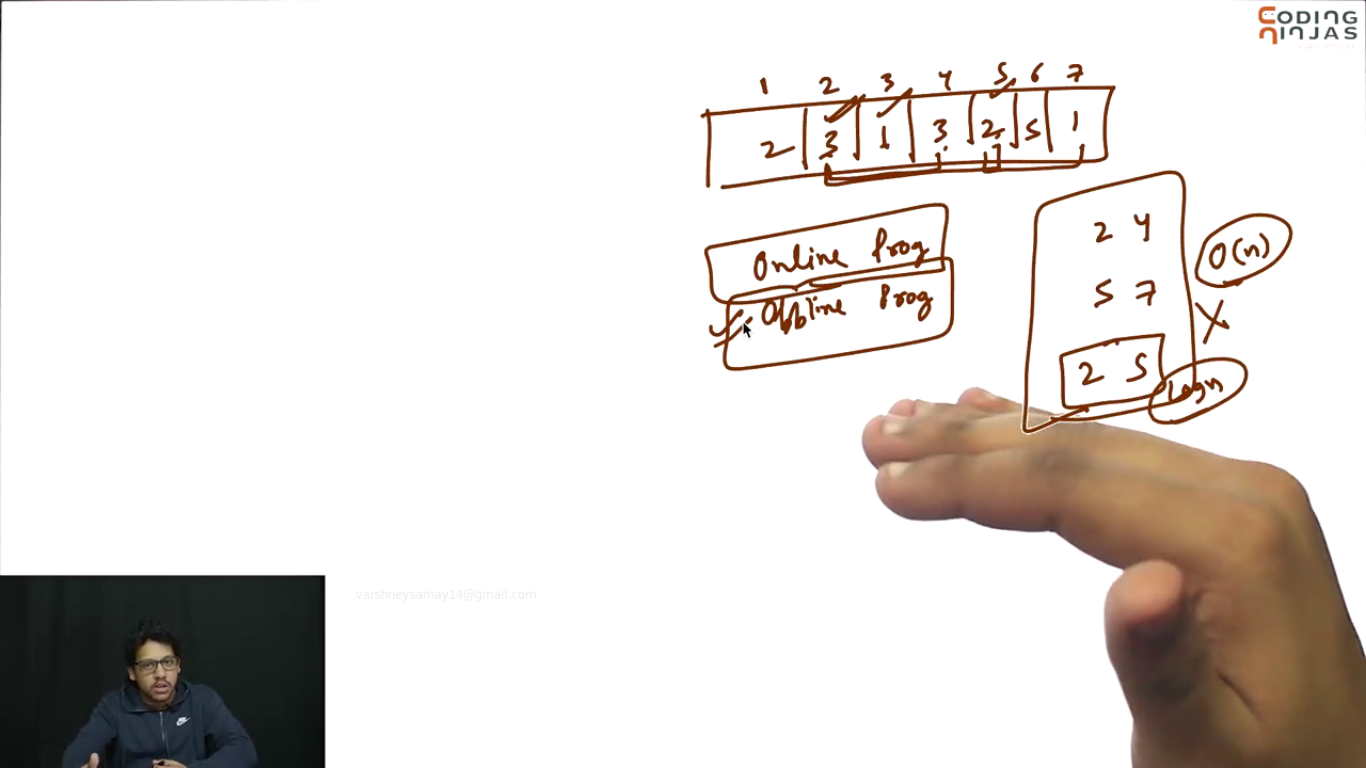 CODING
NINJAS
1 2 3 4 5 6 7
2 3 1 3 2 5 1
Online Prog
Offline Prog
2 4
5 7
2 5
O(n)
logn
varshneysamay14@gmail.com